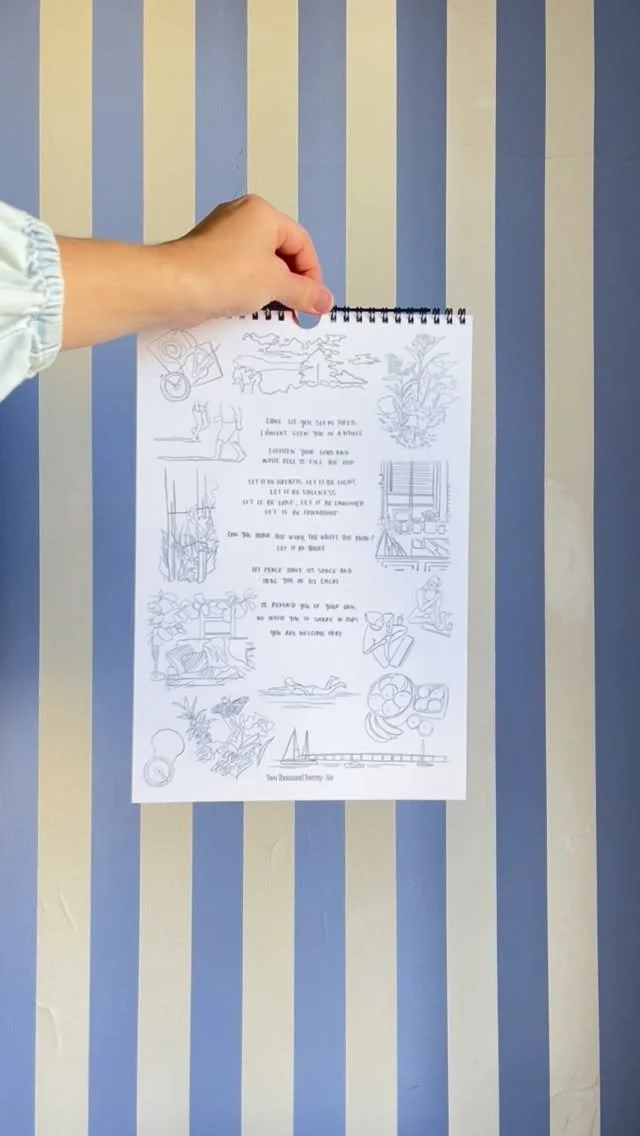 COME SIT YOU SEEM TIRED
I HAVEN'T SEEN YOU IN A WHILE
LIGHTEN YOUR LOAD AND
LET IT BE BREATH, LET IT BE LIGHT,
LET IT BE STILLNESS
LET IT BE LOVE, LET IT BE LAUGHTER
LET IT BE FRIENDSHIP
CAN YOU HEAR THE WIND, THE WAVES, THE
LET IT BE
LET PEACE HAVE ITS SPACE AND
YOU IN ITS CALM
REMIND YOU OF YOUR OWN
WE INVITE YOU TO SHARE IN OURS
YOU ARE WELCOME HERE
Two Thousand Twenty-Six